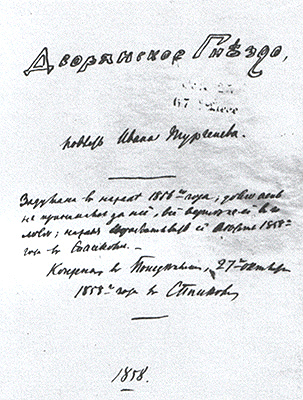 Дворянское Гнѣздо,
повѣсть Ивана Тургенева.
Задумана в начале 1856го года; долго
не принимался за неё, всё вертел её в
голове; начал её 1858го
года в Спасском. —
Кончена в Понедельник, 27го октября
1858го года в Спасском
1858.